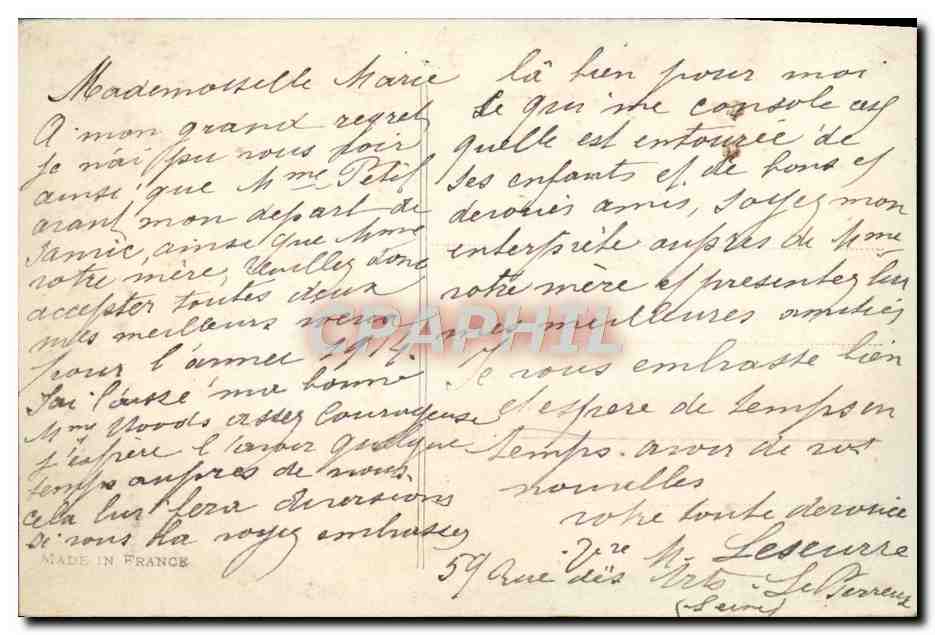 Mademoiselle Marie
A mon grand regret
je n'ai pu vous voir
ainsi que Mme Petit
avant mon depart de
ainsi que Mme
votre mère, Veuillez donc
accepter toutes deux
mes meilleurs voeux
pour l'année 1914.
J'ai laissé ma bonne
Mme Woods assez courageuse
j'espère l'avoir quelque
temps aupres de nous
cela lui fera diversions
si vous la voyez embrassez
là bien pour moi
Ce qui me console est
quelle est entourée de
ses enfants et de bons et
devoués amis, soyez mon
interprète aupres de Mme
votre mère et presentez lui
mes meilleures amitiés
Je vous embrasse bien
et espere de temps en
temps avoir de vos
nouvelles
votre toute devouée
Vve M. Leseurre
59 Rue des Arts Le Perreux
(Seine)
MADE IN FRANCE
CPAPHIL